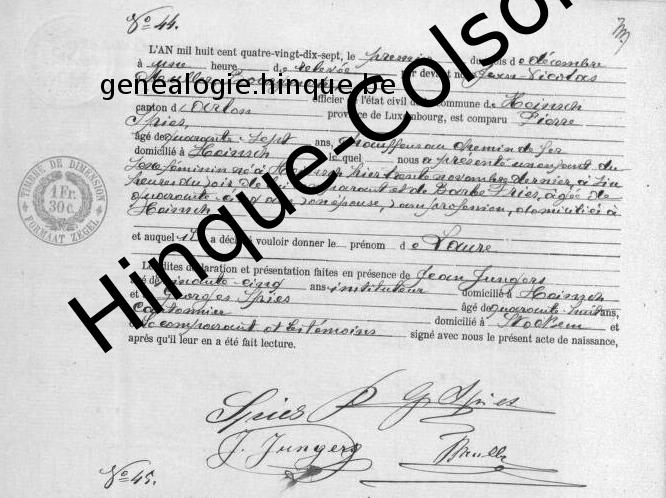 No 44.
L'AN mil huit cent quatre-vingt-dix-sept, le premier du mois de décembre
à une heure de relevée par devant nous Jean Nicolas
officier de l'état civil de la commune de Heinsch
canton d'Arlon province de Luxembourg, est comparu Pierre
Spies,
âgé de quarante sept ans, chauffeur au chemin de fer
domicilié à Heinsch lequel nous a présenté un enfant du
sexe féminin né à Heinsch hier trente novembre dernier, à
heures du soir de lui comparant et de Barbe Fries, âgée de
quarante cinq ans, son épouse, sans profession, domiciliée à
Heinsch
et auquel il a déclaré vouloir donner le prénom de Laure
Lesdites déclaration et présentation faites en présence de Jean Jungers
âgé de cinquante cinq ans instituteur domicilié à Heinsch
et Georges Spies âgé de quarante huit ans,
Cantonnier domicilié à Stockem et
le comparant et les témoins signé avec nous le présent acte de naissance,
après qu'il leur en a été fait lecture.
Spies P G Spies
J. Jungers
No 45.
TIMBRE DE DIMENSION
1 Fr.
30 c.
FORMAAT ZEGEL
genealogie.hinque.be
Hinque-Colson